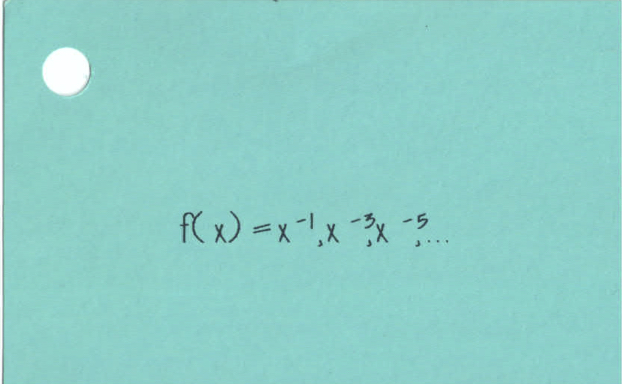 f(x) = x⁻¹, x⁻³, x⁻⁵, ...